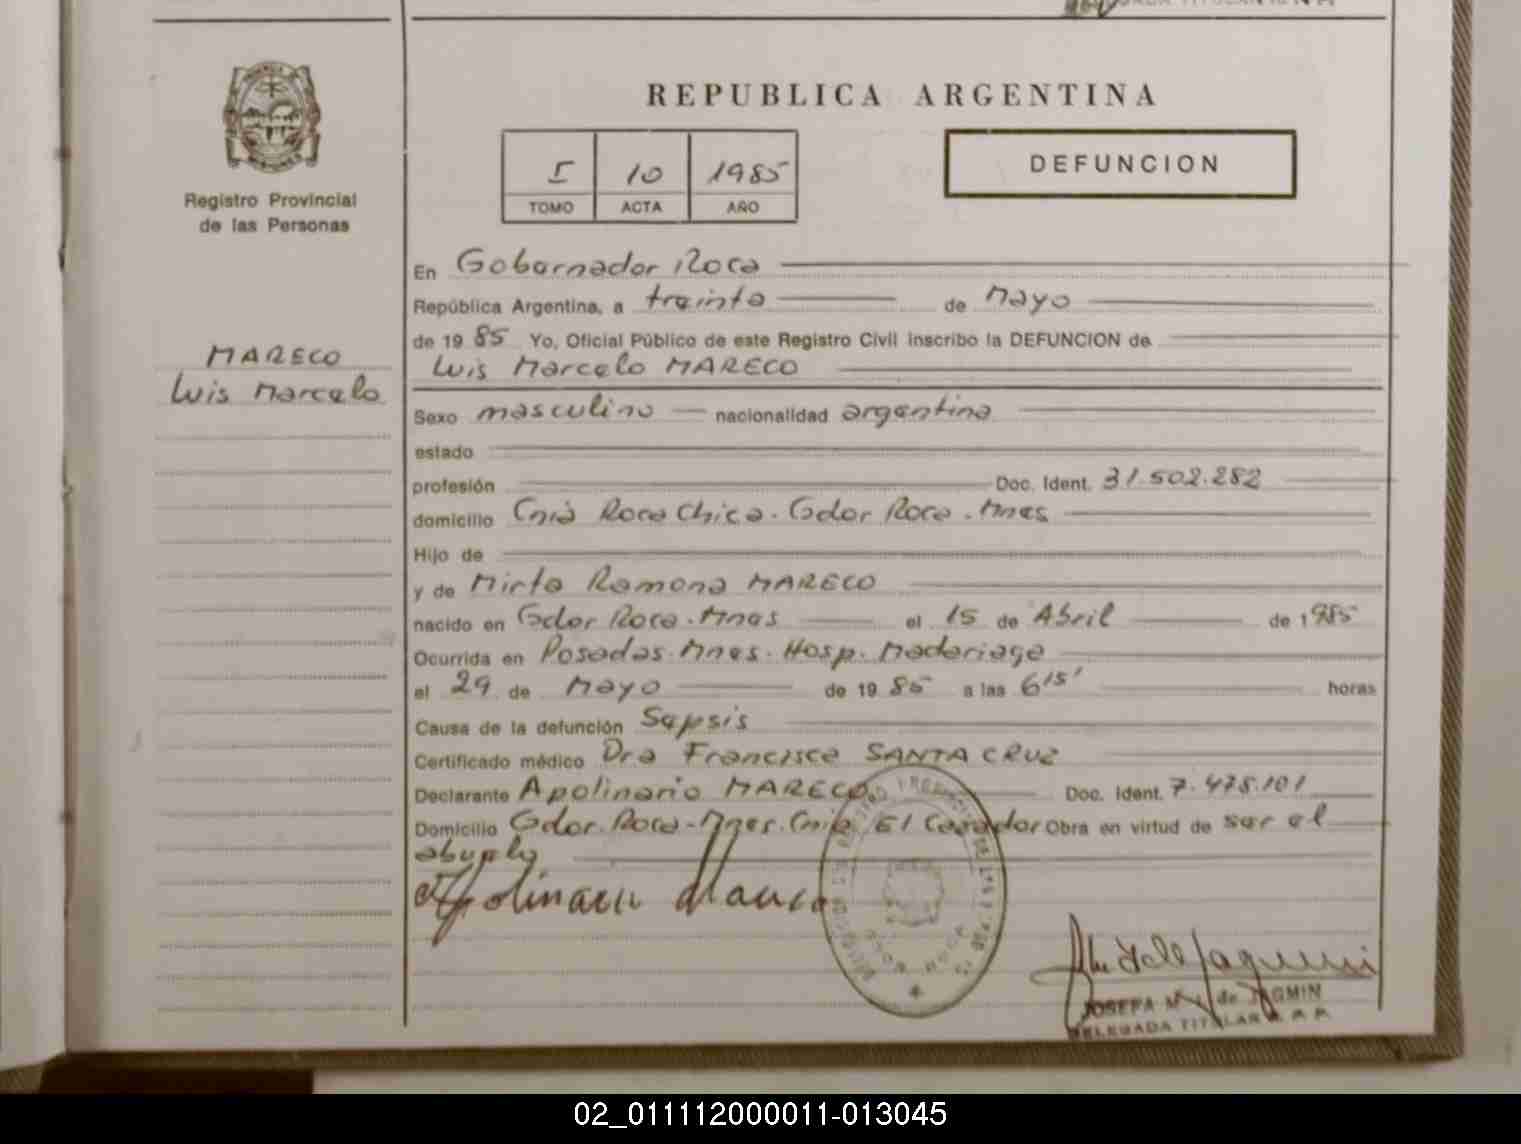 REPUBLICA ARGENTINA
Registro Provincial
de las Personas
I 10 1985
TOMO ACTA AÑO
DEFUNCION
MARECO
Luis Marcelo
En Gobernador Roca
República Argentina, a treinta de Mayo
de 1985 Yo, Oficial Público de este Registro Civil inscribo la DEFUNCION de
Luis Marcelo MARECO
Sexo masculino nacionalidad argentina
estado
profesión Doc. Ident. 31.502.282
domicilio Cnia Roca Chica. Gdor Roca. Mnes
Hijo de
y de Mirta Ramona MARECO
nacido en Gdor Roca. Mnes el 15 de Abril de 1985
Ocurrida en Posadas. Mnes. Hosp. Madariaga
el 29 de Mayo de 1985 a las 6 15' horas
Causa de la defunción Sepsis
Certificado médico Dra Francisca SANTA CRUZ
Declarante Apolinario MARECO Doc. Ident. 7.475.101
Domicilio Gdor. Roca-Mnes. Cnia El Cazador Obra en virtud de ser el
abuelo
JOSEFA de JAGMIN
DELEGADA TITULAR
02_011112000011-013045